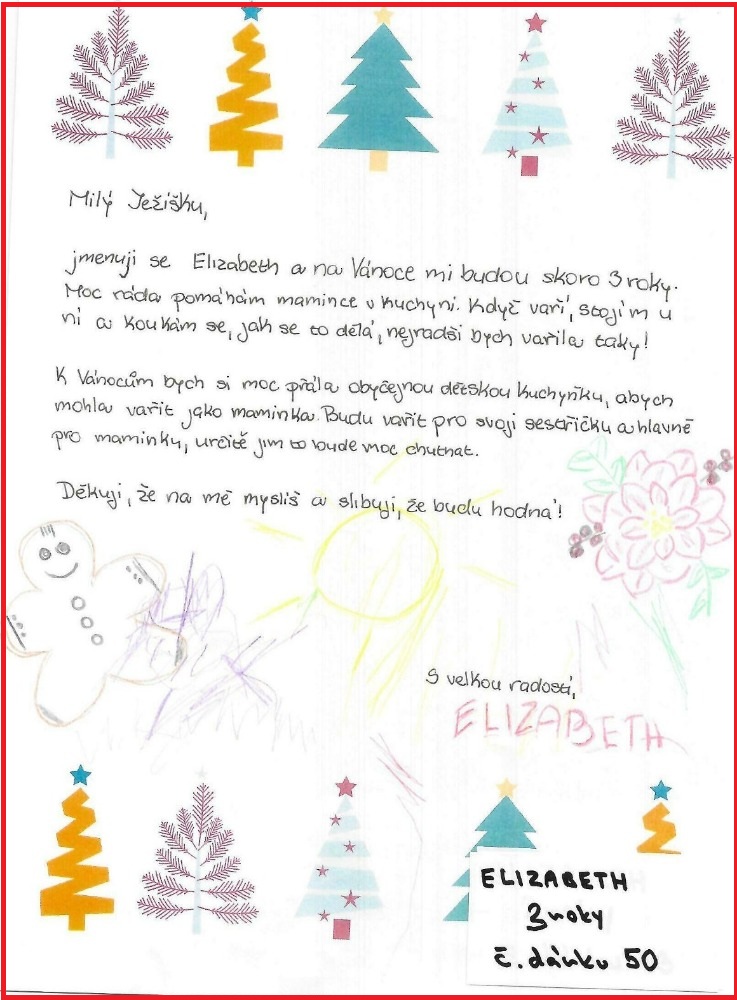 Milý Ježíšku,
jmenuji se Elizabeth a na Vánoce mi budou skoro 3 roky.
Moc ráda pomáhám mamince v kuchyni. Když vaří, stojím u
ní a koukám se, jak se to dělá, nejradši bych vařila taky!
K Vánocům bych si moc přála obyčejnou dětskou kuchyňku, abych
mohla vařit jako maminka. Budu vařit pro svoji sestřičku a hlavně
pro maminku, určitě jim to bude moc chutnat.
Děkuji, že na mě myslíš a slibuji, že budu hodná!
S velkou radostí,
ELIZABETH
ELIZABETH
3 roky
č. dárku 50